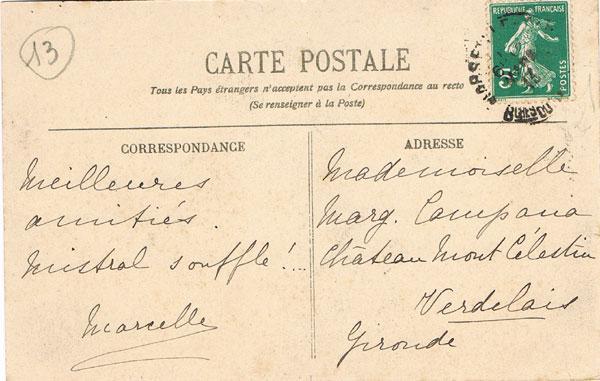 13
CARTE POSTALE
Tous les Pays étrangers n'acceptent pas la Correspondance au recto
(Se renseigner à la Poste)
RÉPUBLIQUE FRANÇAISE
5c
POSTES
CORRESPONDANCE
Meilleures
amitiés.
Mistral souffle!...
Marcelle
ADRESSE
Mademoiselle
Marg. Campana
Château Mont Célestin
Verdelais
Gironde